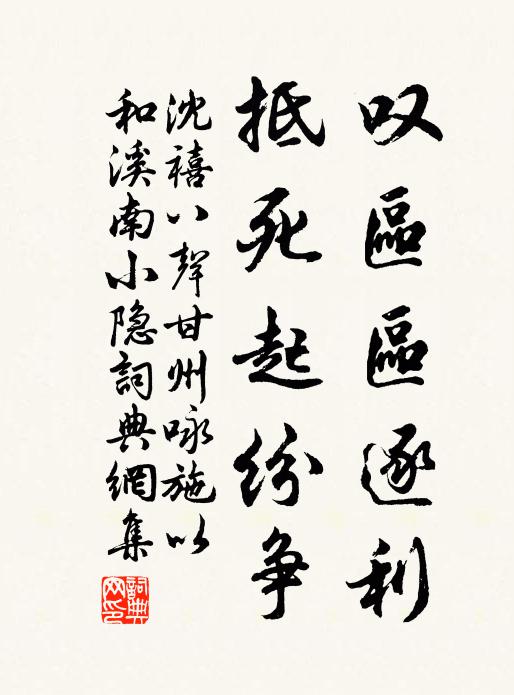 叹區區逐利
抵死起纷争
沈禧八聲甘州咏施以
和溪南小隐詞典網集
詞典網印